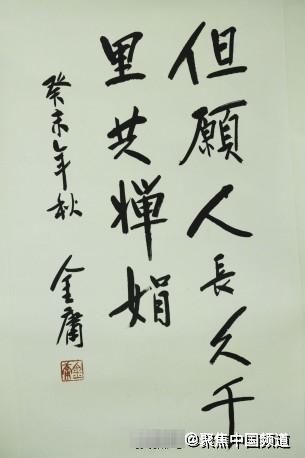 但願人長久千
里共嬋娟
癸未年秋
金庸
金庸
@聚焦中国频道